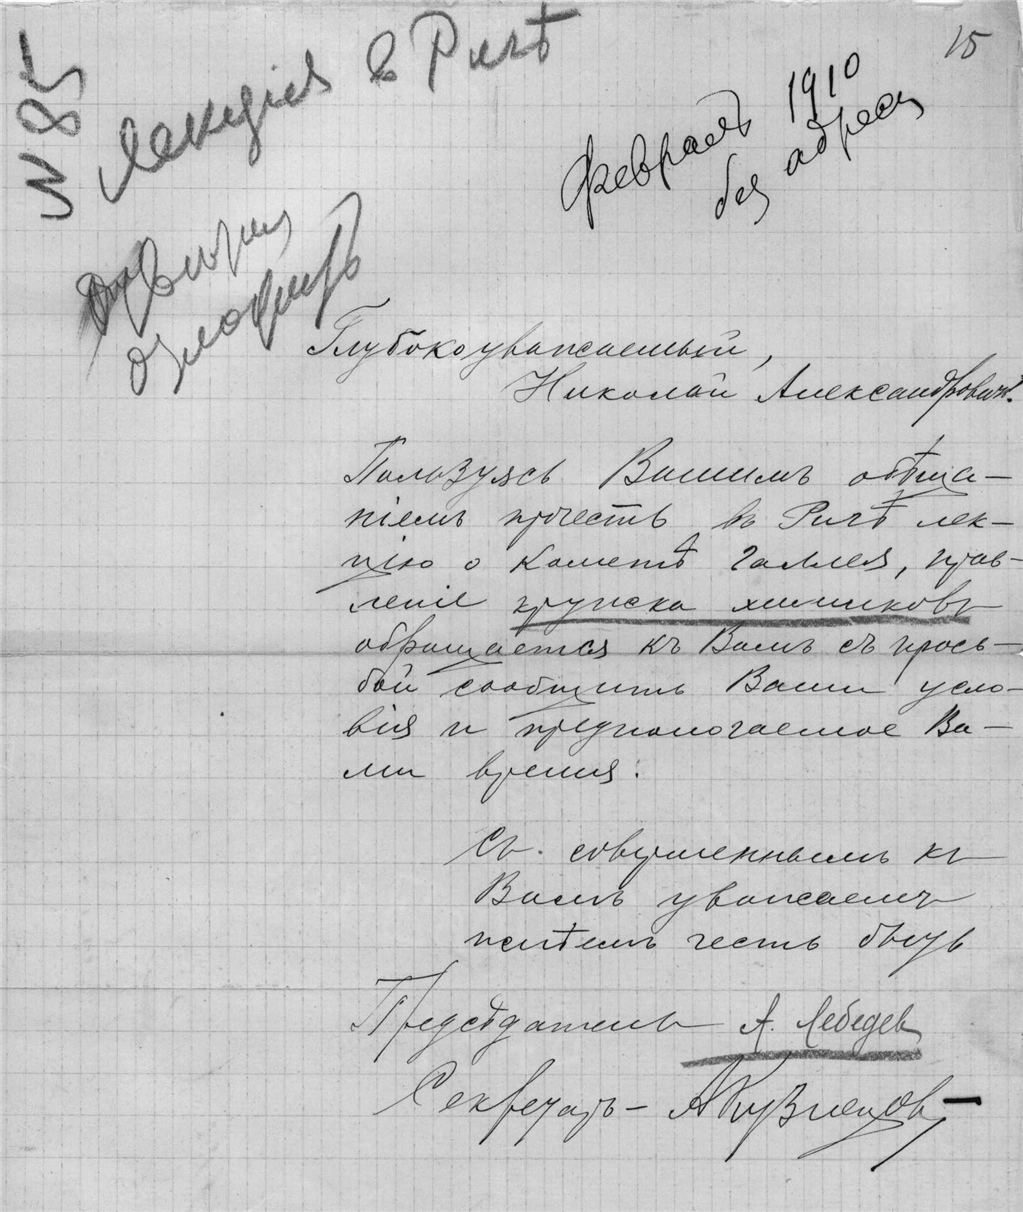 15
N 85
Лекція в Ригѣ
февраль 1910
без адреса
Глубокоуважаемый,
Николай Александровичъ!
Пользуясь Вашимъ обѣща-
ніемъ прочесть въ Ригѣ лек-
цію о кометѣ Галлея, прав-
леніе кружка химиковъ
обращается къ Вамъ съ прось-
бой сообщить Ваши усло-
вія и предпологаемое Ва-
ми время.
Съ совершеннымъ къ
Вамъ уваженіемъ
имѣемъ честь быть
Предсѣдатель А. Лебедев
Секретарь – А Кузнецов